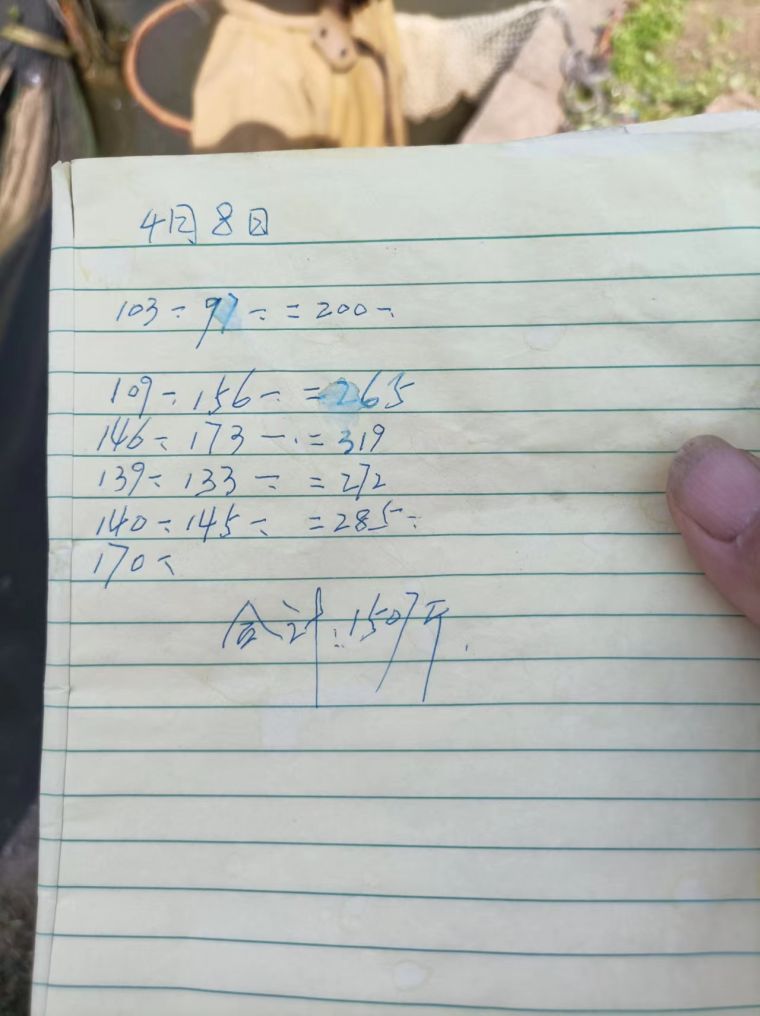 4月8日
103÷97÷=200÷
109÷156÷=265
146÷173÷=319
139÷133÷=272
140÷145÷=285÷
170÷
合计:1507斤.